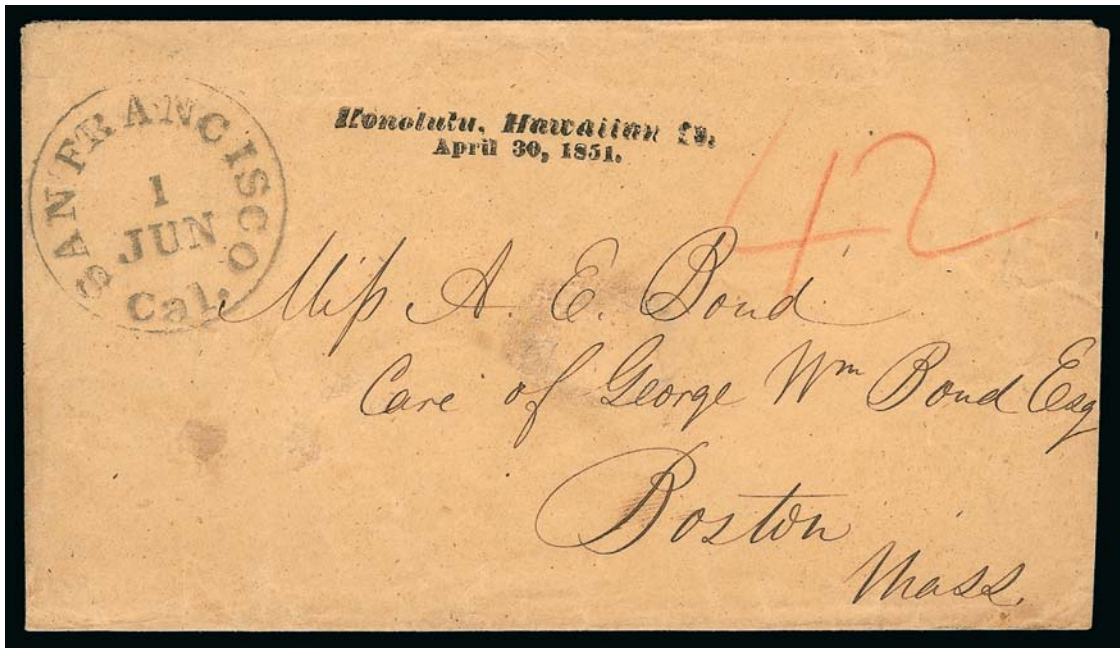 SAN FRANCISCO
1
JUN
Cal.
Honolulu, Hawaiian Is.
April 30, 1851.
42
Miss A. E. Bond
Care of George Wm Bond Esq
Boston
Mass.